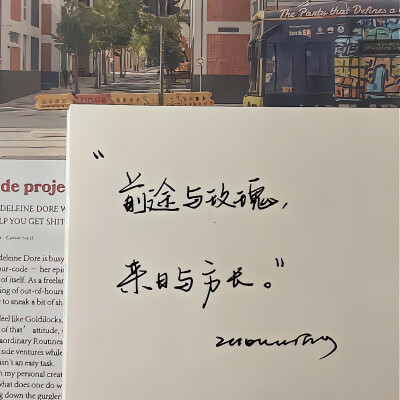 The Party that Defines a
DORE
de proje
DELEINE DORE W
LP YOU GET SHIT
deleine Dore is busy
our-code — her epi
of itself. As a freelan
ing of out-of-hours
to sneak a bit of sh
feel like Goldilocks,
of that’ attitude,
raordinary Routines
side ventures while
isn't an easy task.
my personal creat
what does one do w
g down the gurgler
“前途与玫瑰，
来日与方长。”